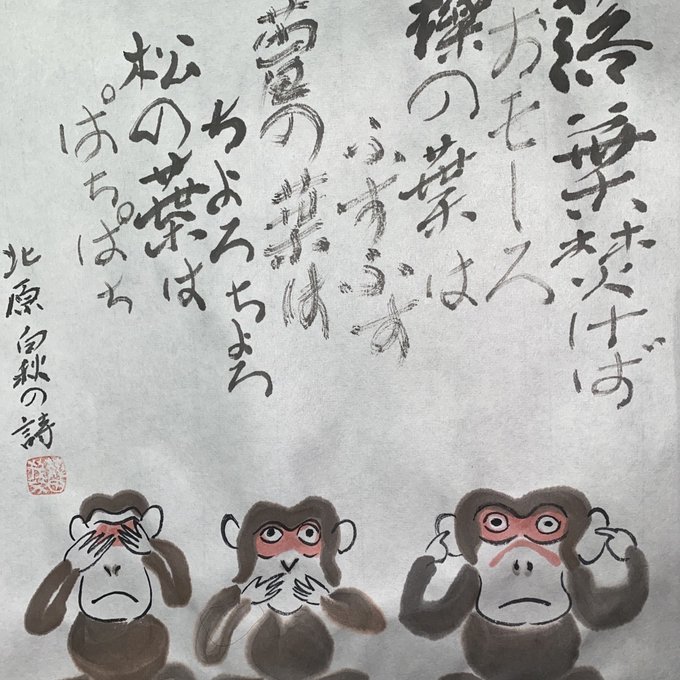 落葉焚けば
おもしろ
櫟の葉は
ふすぶす
萱の葉は
ちよろちよろ
松の葉は
ぱちぱち
北原白秋の詩